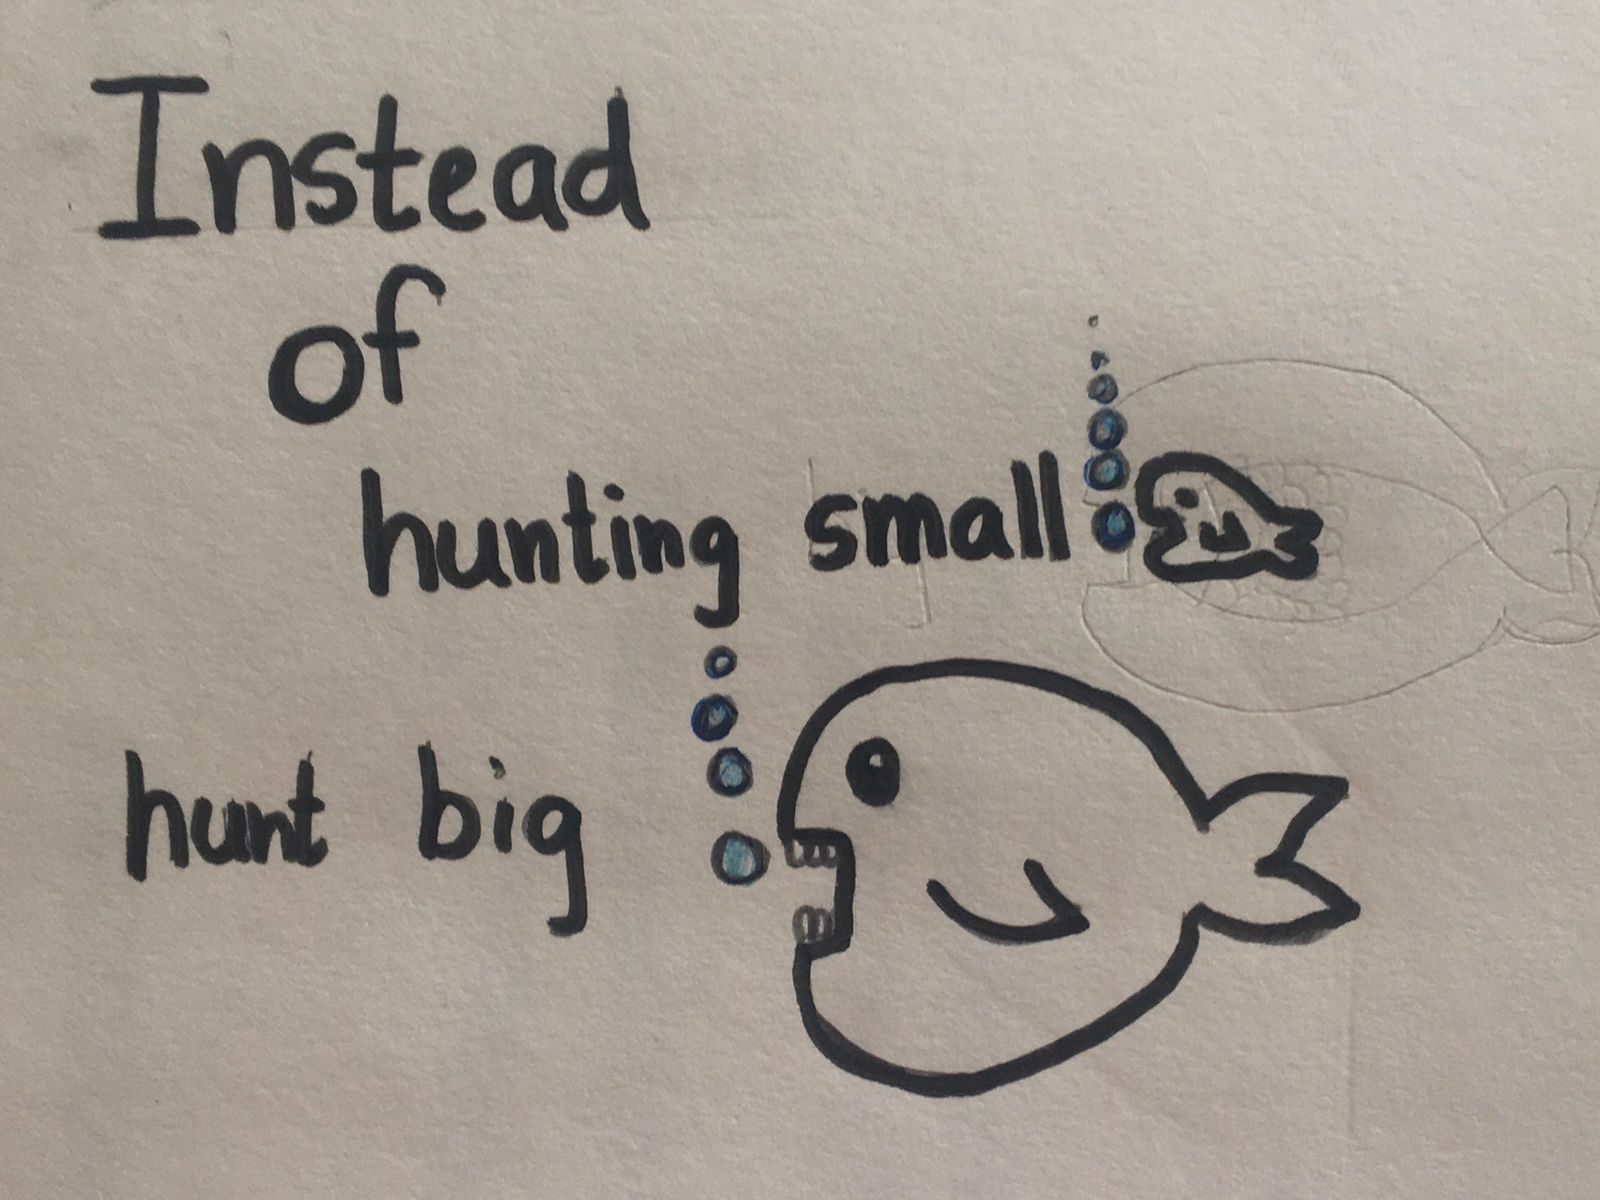 Instead
of
hunting small
hunt big